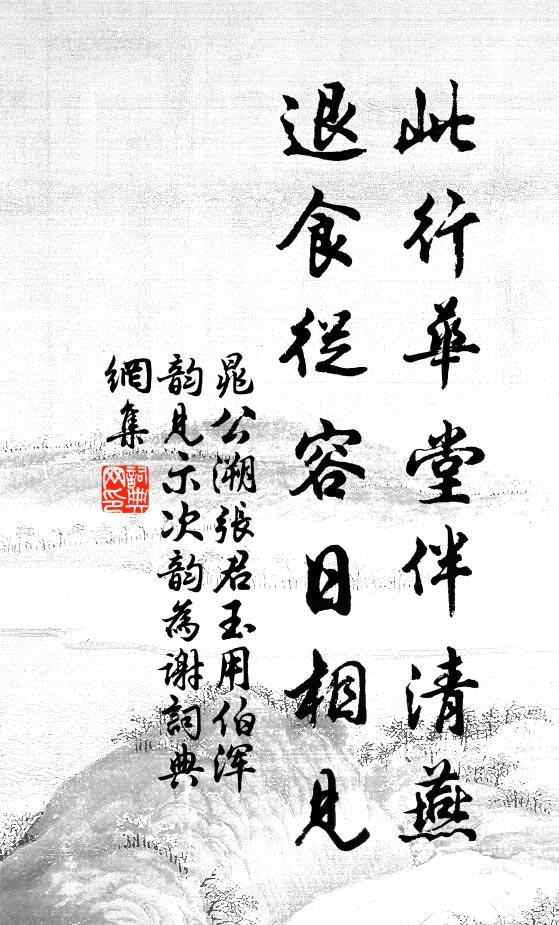 此行華堂伴清燕
退食從容日相見
晁公溯張君玉用伯浑
韵見示次韵為謝詞典
網集
詞典網印